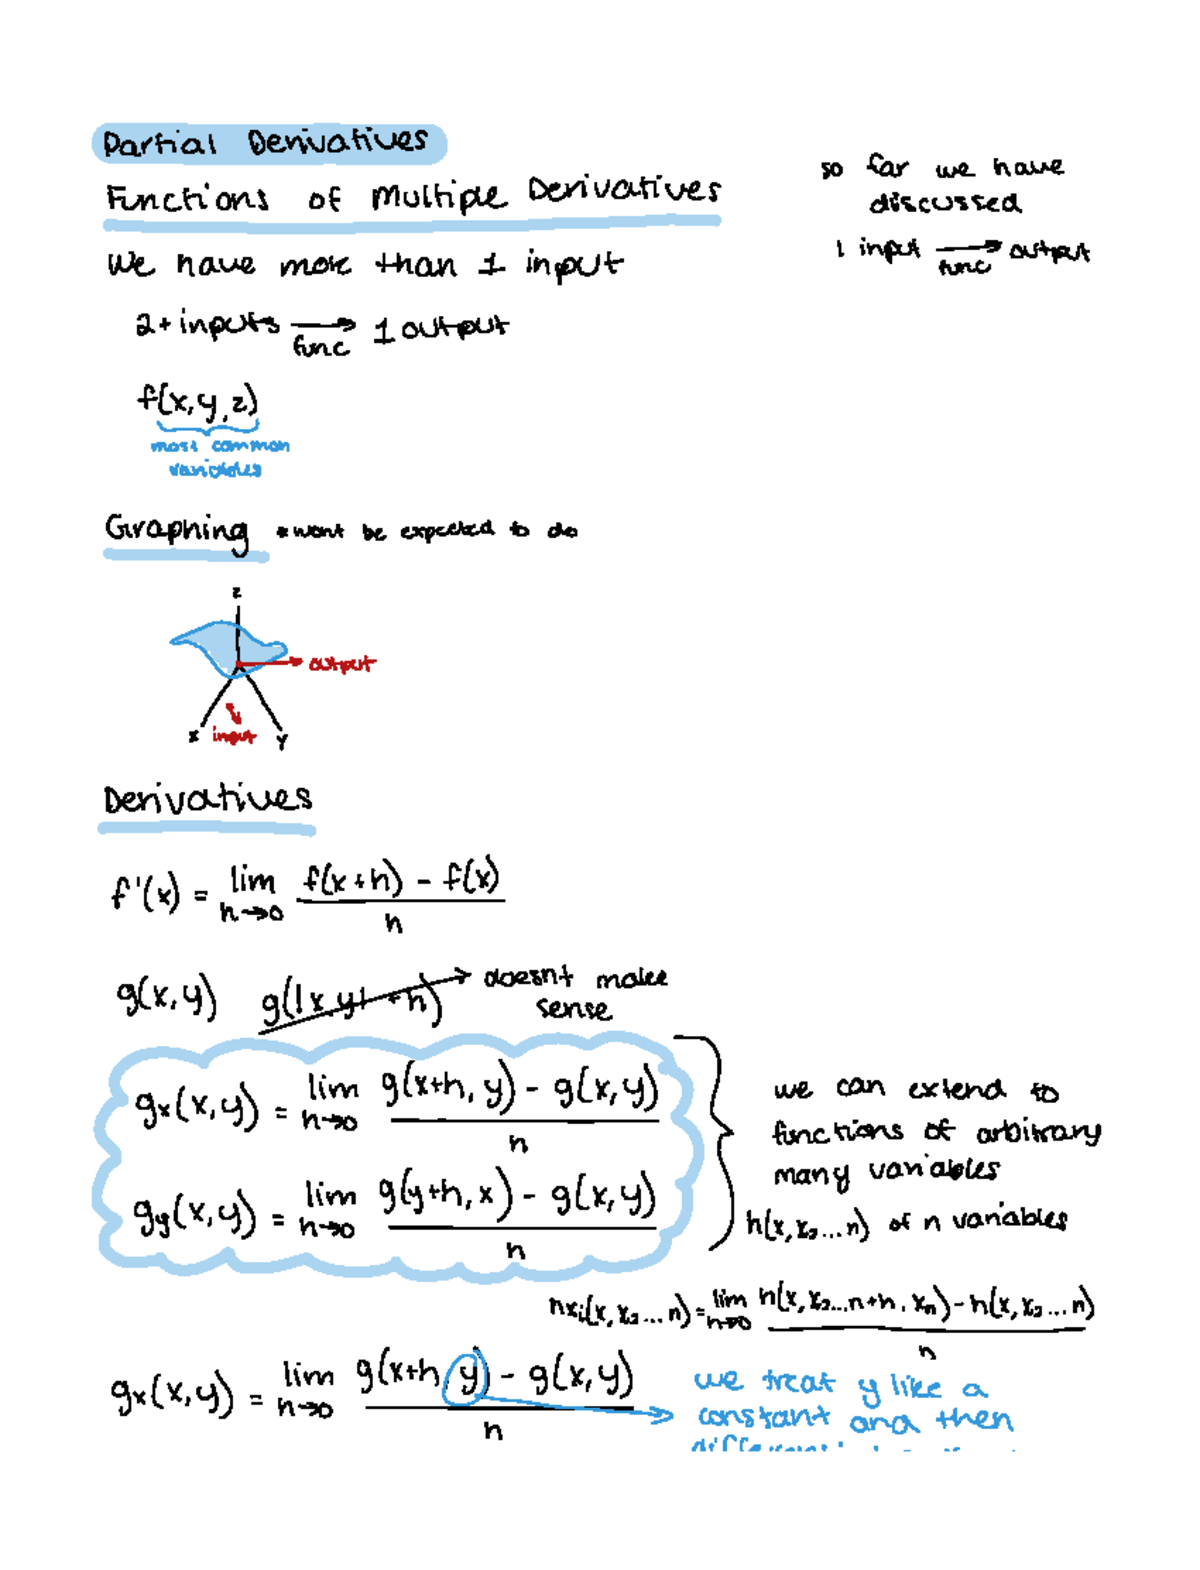 Partial Derivatives
Functions of Multiple Derivatives
so far we have
discussed
1 input → output
func
We have more than 1 input
2+ inputs → 1 output
func
f(x, y, z)
most common
variables
Graphing *wont be expected to do
z
output
x input y
Derivatives
f'(x) = lim f(x+h) - f(x)
h→0 h
g(x,y) g((x,y)+h) → doesnt make
sense
gx(x,y) = lim g(x+h, y) - g(x,y)
h→0 h
gy(x,y) = lim g(y+h, x) - g(x,y)
h→0 h
we can extend to
functions of arbitrary
many variables
h(x, x2 ... n) of n variables
hxi(x, x2 ... n) = lim h(x, x2 ... n+h, xn) - h(x, x2 ... n)
h→0 h
gx(x,y) = lim g(x+h, y) - g(x,y)
h→0 h
we treat y like a
constant and then